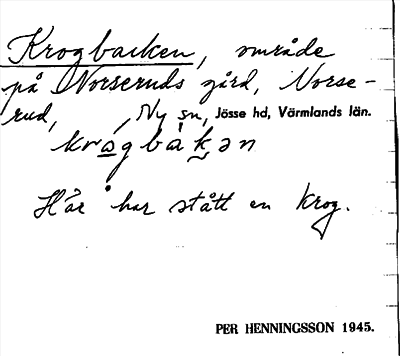 Krogbacken, område
på Norseruds gård, Norse-
rud, Ny sn, Jösse hd, Värmlands län.
Här har stått en krog.
PER HENNINGSSON 1945.